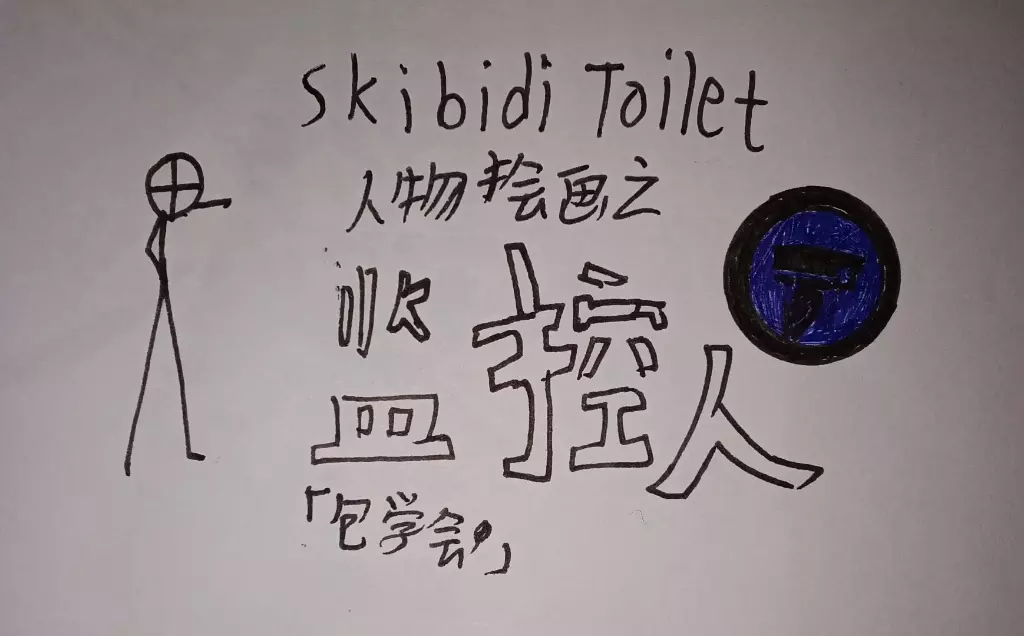 Skibidi Toilet
人物绘画之
监控人
「包学会,」